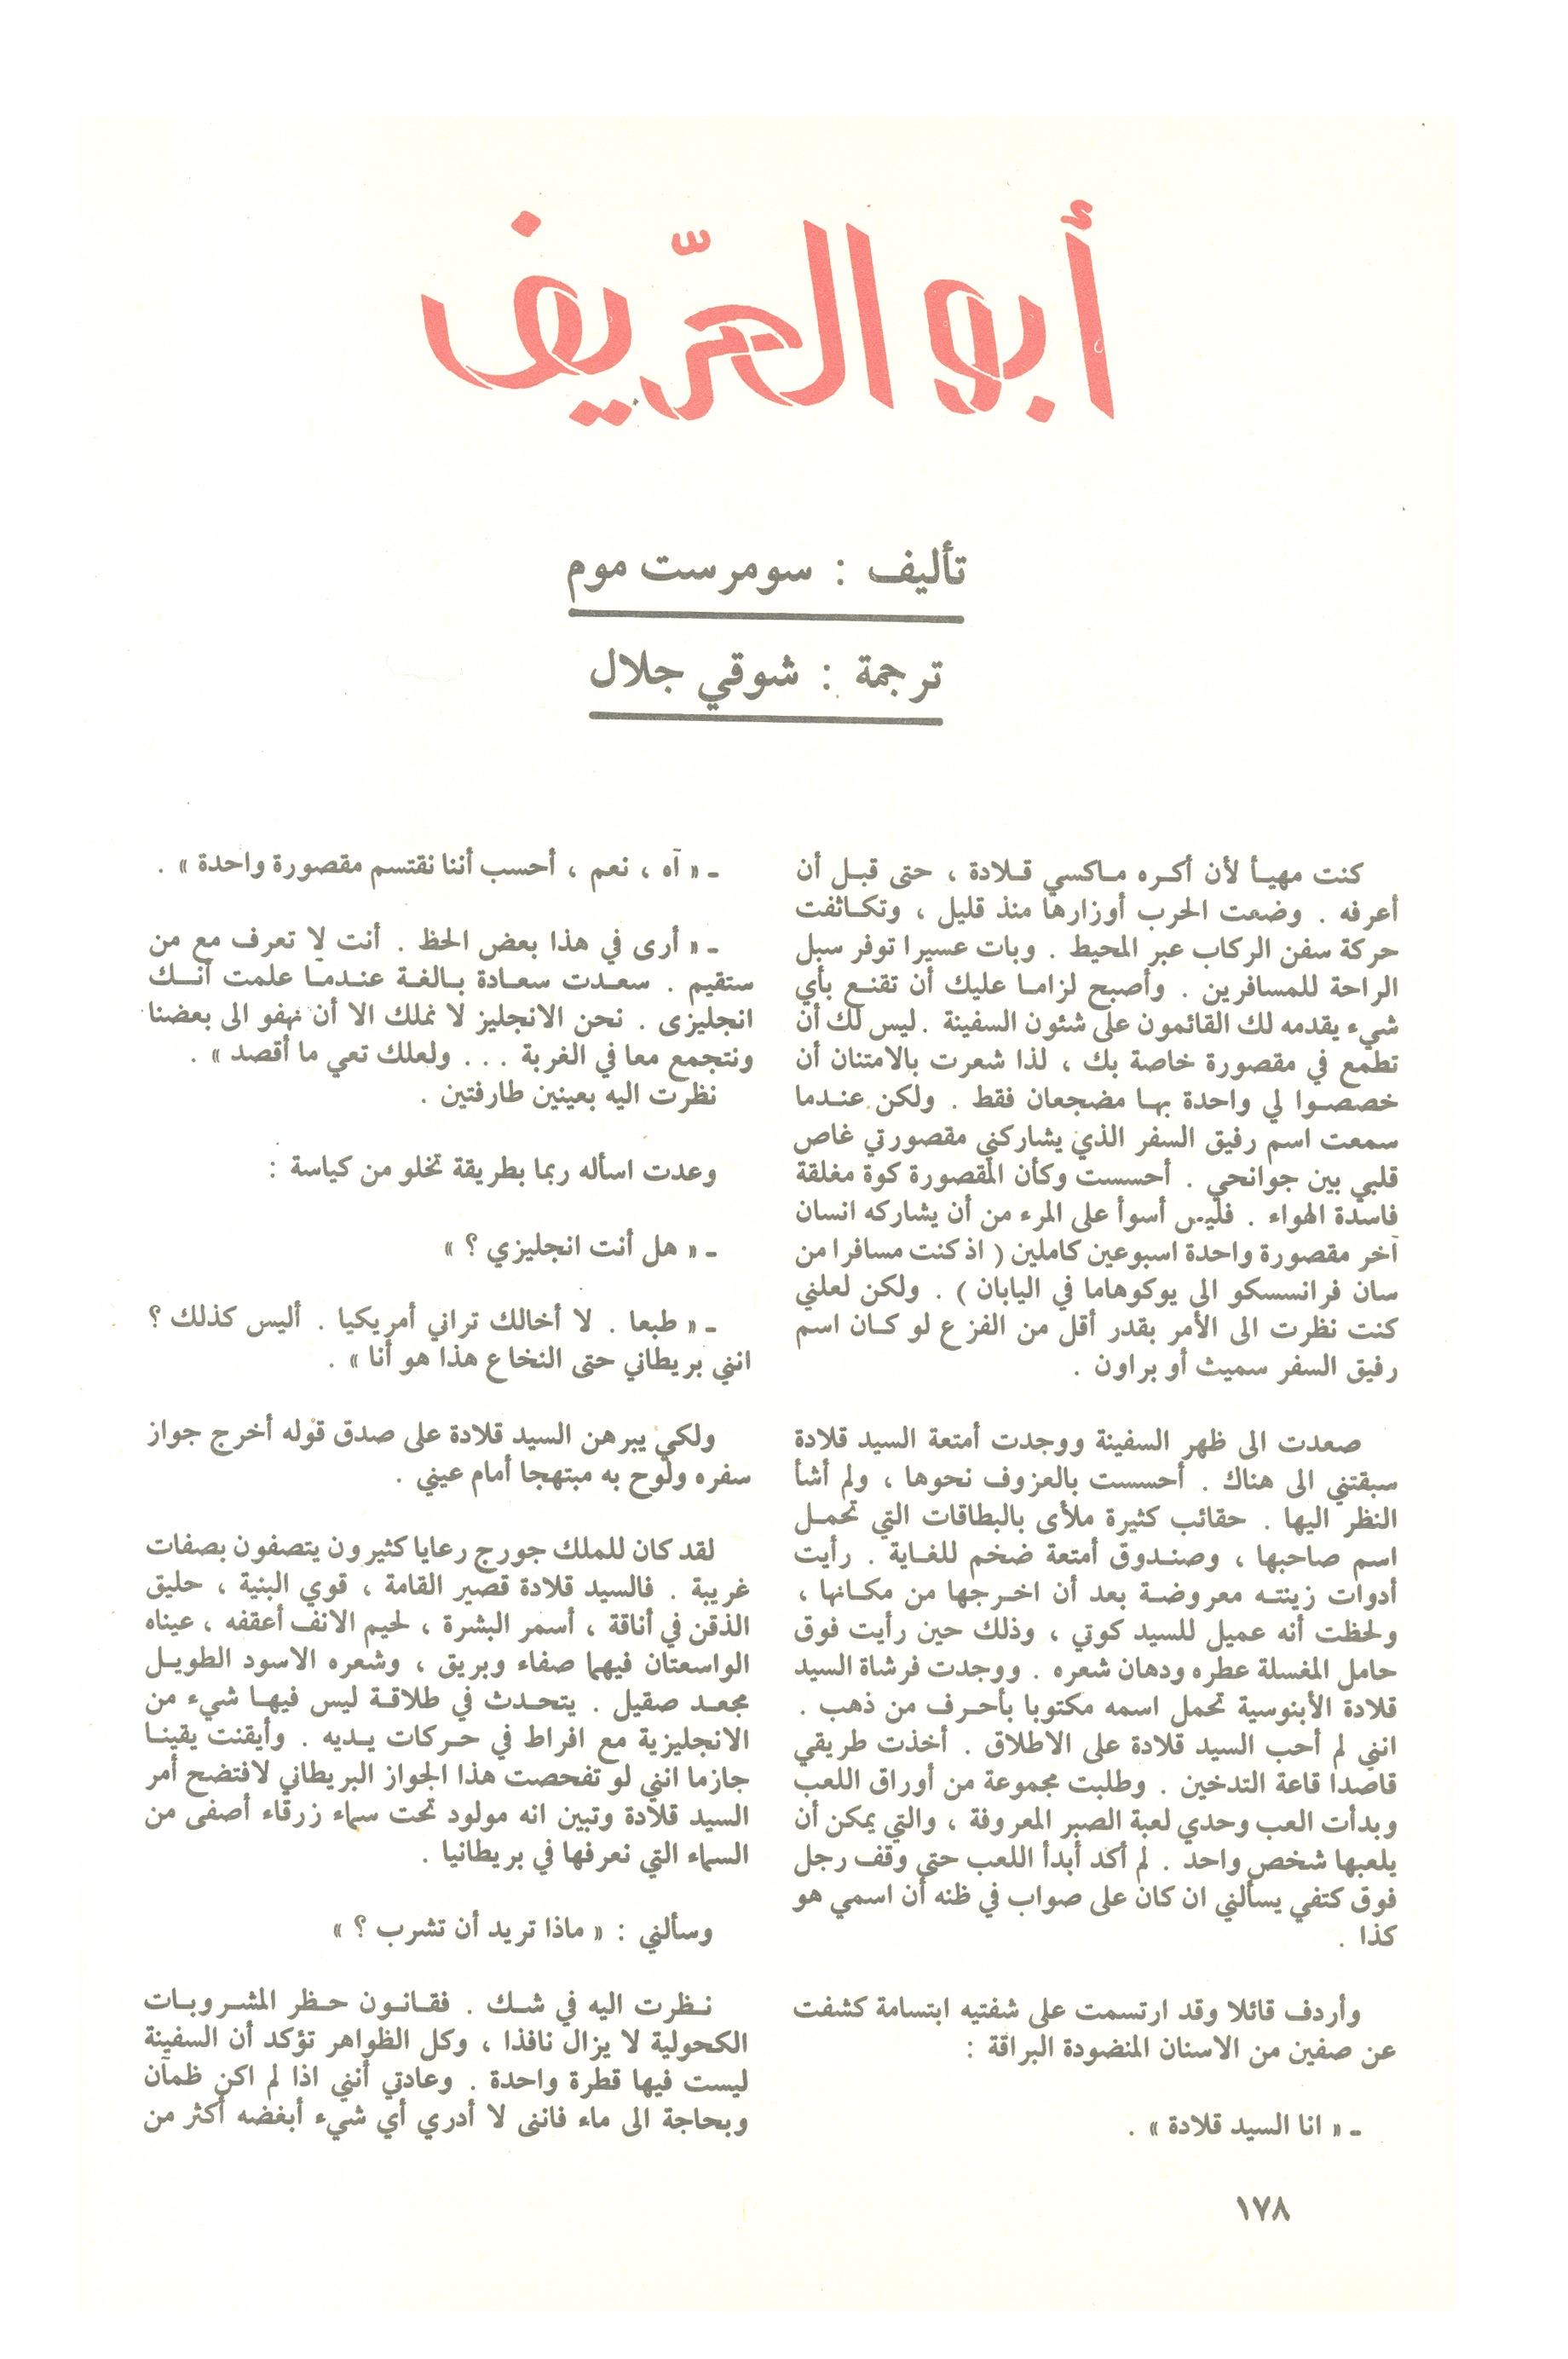 أبو العرّيف
تأليف : سومرست موم
ترجمة : شوقي جلال
كنت مهيأ لأن أكره ماكسي قلادة ، حتى قبل أن
أعرفه . وضعت الحرب أوزارها منذ قليل ، وتكاثفت
حركة سفن الركاب عبر المحيط . وبات عسيرا توفر سبل
الراحة للمسافرين . وأصبح لزاما عليك أن تقنع بأي
شيء يقدمه لك القائمون على شئون السفينة . ليس لك أن
تطمع في مقصورة خاصة بك ، لذا شعرت بالامتنان أن
خصصوا لي واحدة بها مضجعان فقط . ولكن عندما
سمعت اسم رفيق السفر الذي يشاركني مقصورتي غاص
قلبي بين جوانحي . أحسست وكأن المقصورة كوة مغلقة
فاسدة الهواء . فليس أسوأ على المرء من أن يشاركه انسان
آخر مقصورة واحدة اسبوعين كاملين ( اذ كنت مسافرا من
سان فرانسسكو الى يوكوهاما في اليابان ) . ولكن لعلني
كنت نظرت الى الأمر بقدر أقل من الفزع لو كان اسم
رفيق السفر سميث أو براون .
صعدت الى ظهر السفينة ووجدت أمتعة السيد قلادة
سبقتني الى هناك . أحسست بالعزوف نحوها ، ولم أشأ
النظر اليها . حقائب كثيرة ملأى بالبطاقات التي تحمل
اسم صاحبها ، وصندوق أمتعة ضخم للغاية . رأيت
أدوات زينته معروضة بعد أن اخرجها من مكانها ،
ولحظت أنه عميل للسيد كوتي ، وذلك حين رأيت فوق
حامل المغسلة عطره ودهان شعره . ووجدت فرشاة السيد
قلادة الأبنوسية تحمل اسمه مكتوبا بأحرف من ذهب .
انني لم أحب السيد قلادة على الاطلاق . أخذت طريقي
قاصدا قاعة التدخين . وطلبت مجموعة من أوراق اللعب
وبدأت العب وحدي لعبة الصبر المعروفة ، والتي يمكن أن
يلعبها شخص واحد . لم أكد أبدأ اللعب حتى وقف رجل
فوق كتفي يسألني ان كان على صواب في ظنه أن اسمي هو
كذا .
وأردف قائلا وقد ارتسمت على شفتيه ابتسامة كشفت
عن صفين من الاسنان المنضودة البراقة :
ـ « انا السيد قلادة » .
ـ « آه ، نعم ، أحسب أننا نقتسم مقصورة واحدة » .
ـ « أرى في هذا بعض الحظ . أنت لا تعرف مع من
ستقيم . سعدت سعادة بالغة عندما علمت أنك
انجليزى . نحن الانجليز لا نملك الا أن نهفو الى بعضنا
ونتجمع معا في الغربة . . . ولعلك تعي ما أقصد » .
نظرت اليه بعينين طارفتين .
وعدت اسأله ربما بطريقة تخلو من كياسة :
ـ « هل أنت انجليزي ؟ »
ـ « طبعا . لا أخالك تراني أمريكيا . أليس كذلك ؟
انني بريطاني حتى النخاع هذا هو أنا » .
ولكي يبرهن السيد قلادة على صدق قوله أخرج جواز
سفره ولوح به مبتهجا أمام عيني .
لقد كان للملك جورج رعايا كثيرون يتصفون بصفات
غريبة . فالسيد قلادة قصير القامة ، قوي البنية ، حليق
الذقن في أناقة ، أسمر البشرة ، لحيم الانف أعقفه ، عيناه
الواسعتان فيهما صفاء وبريق ، وشعره الاسود الطويل
مجعد صقيل . يتحدث في طلاقة ليس فيها شيء من
الانجليزية مع افراط في حركات يديه . وأيقنت يقينا
جازما انني لو تفحصت هذا الجواز البريطاني لافتضح أمر
السيد قلادة وتبين انه مولود تحت سماء زرقاء أصفى من
السماء التي نعرفها في بريطانيا .
وسألني : « ماذا تريد أن تشرب ؟ »
نظرت اليه في شك . فقانون حظر المشروبات
الكحولية لا يزال نافذا ، وكل الظواهر تؤكد أن السفينة
ليست فيها قطرة واحدة . وعادتي أنني اذا لم اكن ظمآن
وبحاجة الى ماء فاننى لا أدري أي شيء أبغضه أكثر من
١٧٨